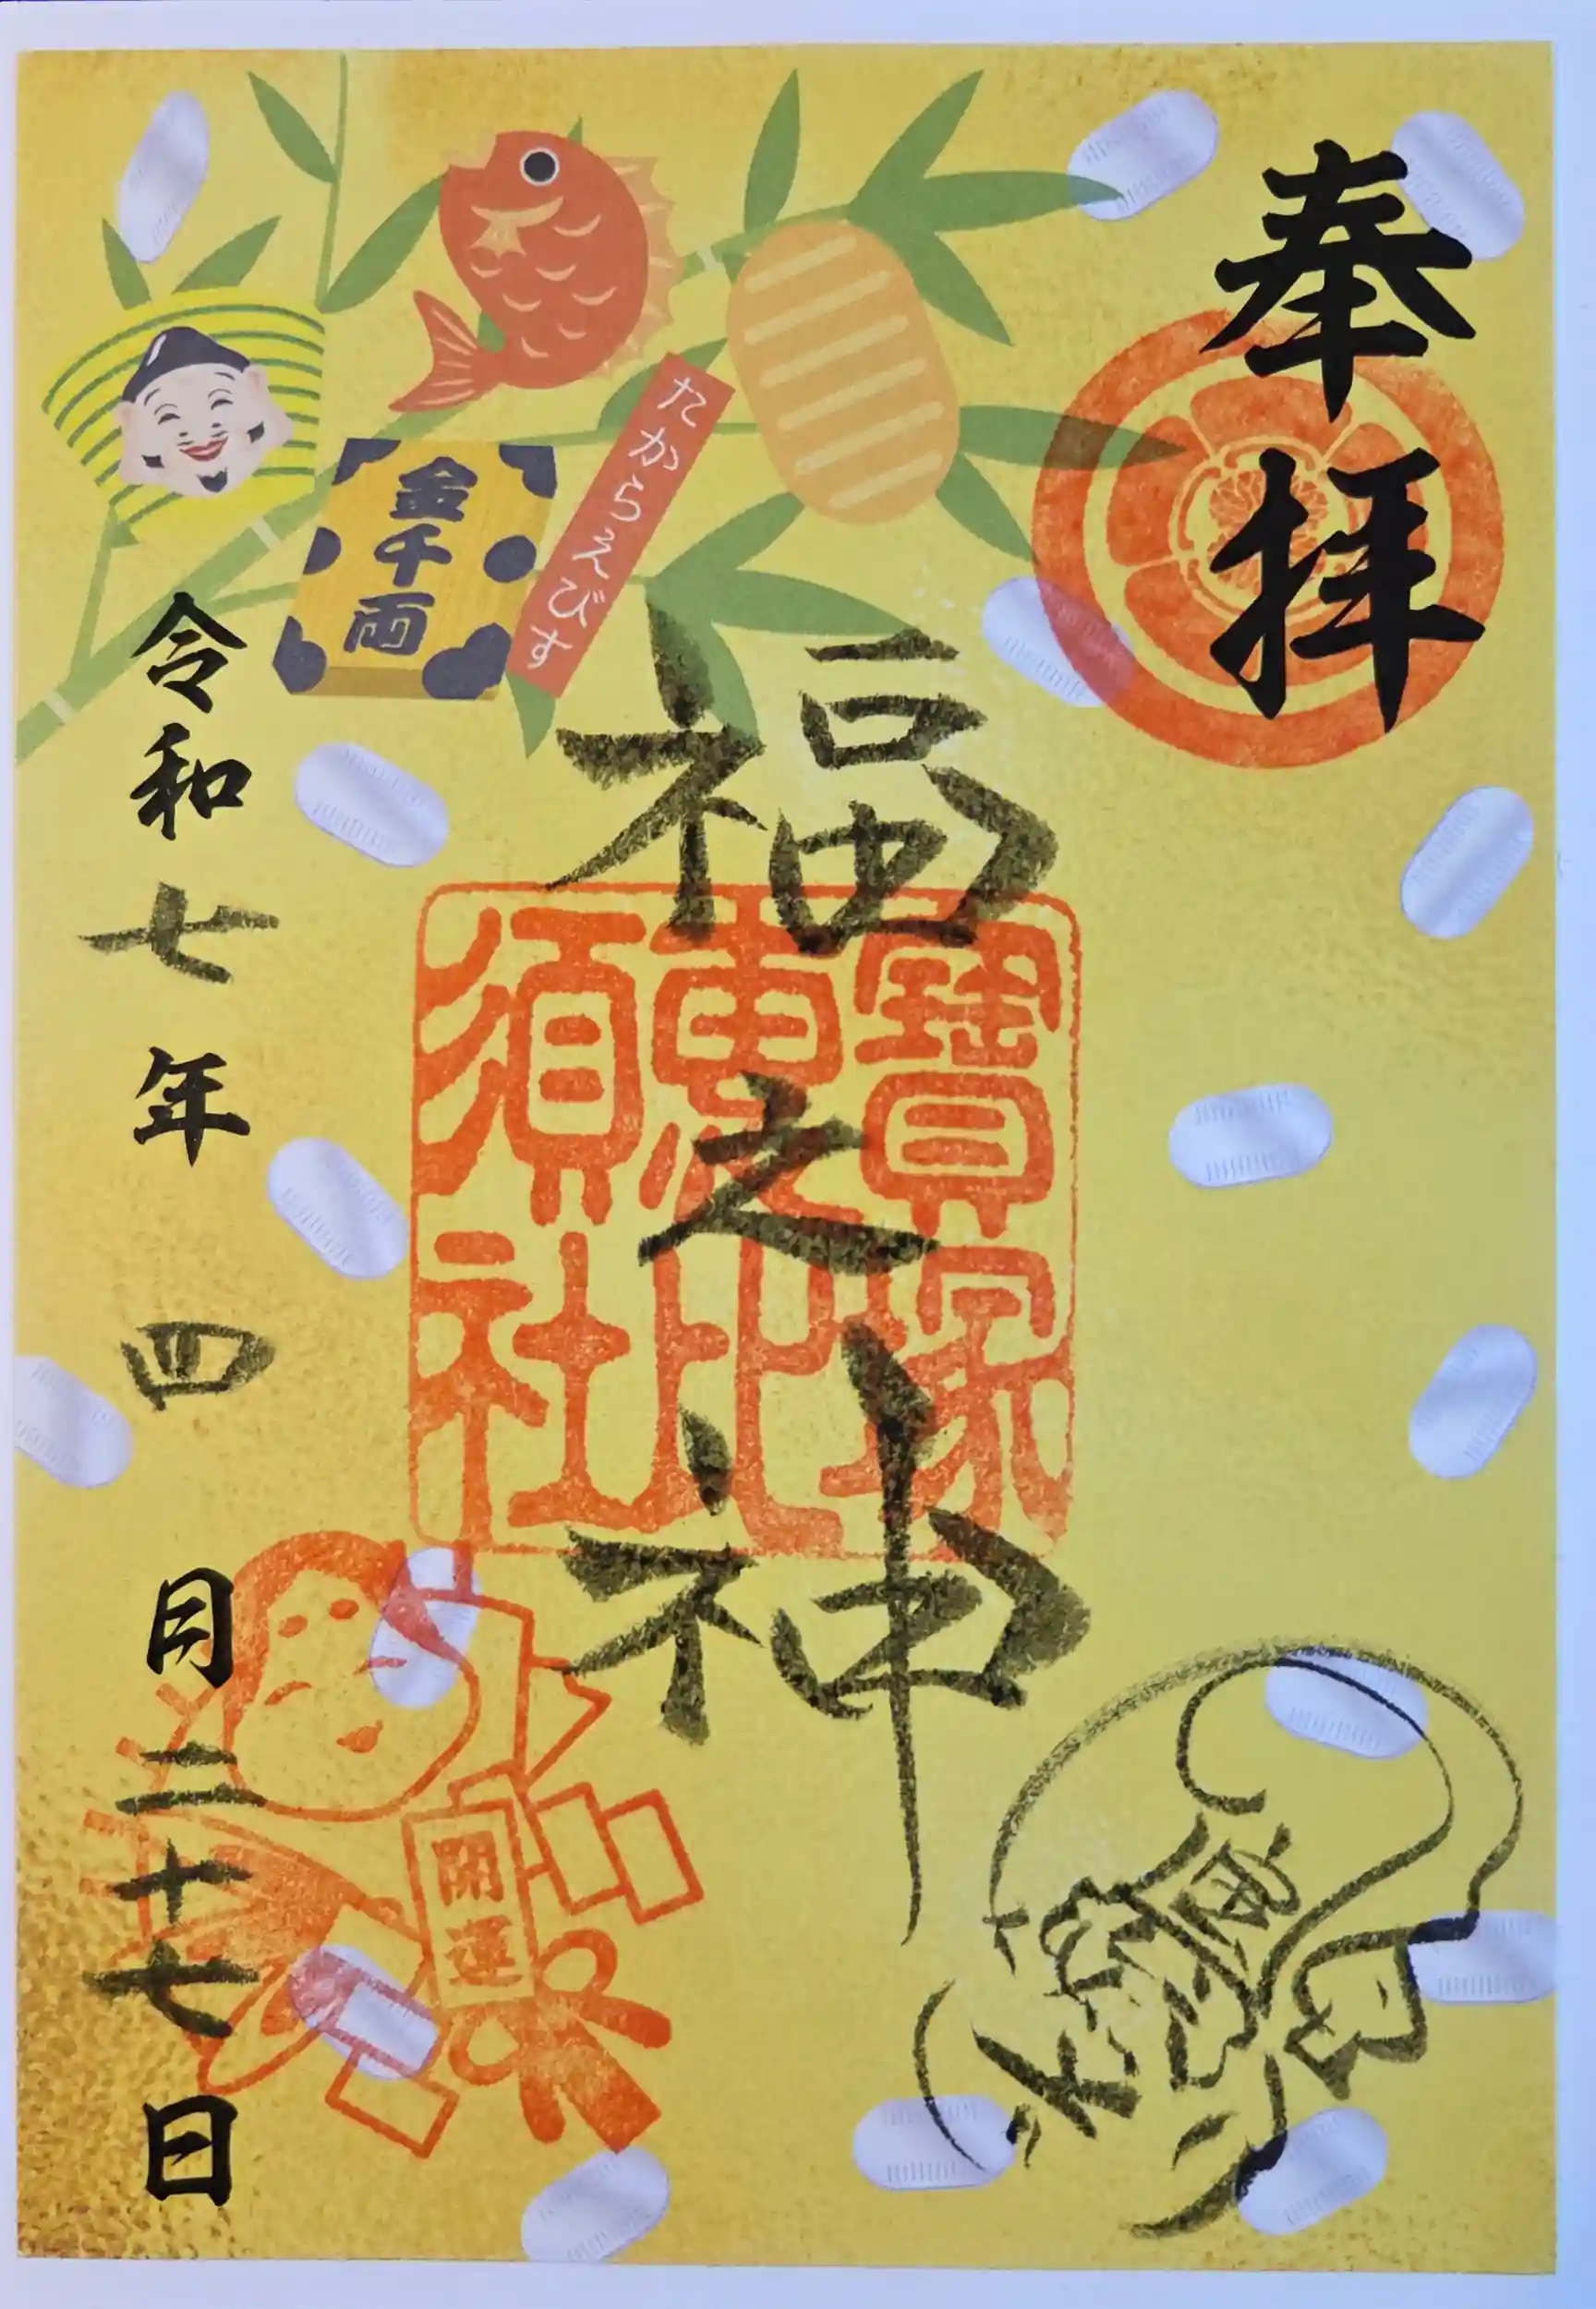 奉拝
たからえびす
金千両
福之神
寶塚
惠比
須社
令和七年四月二十七日
開運